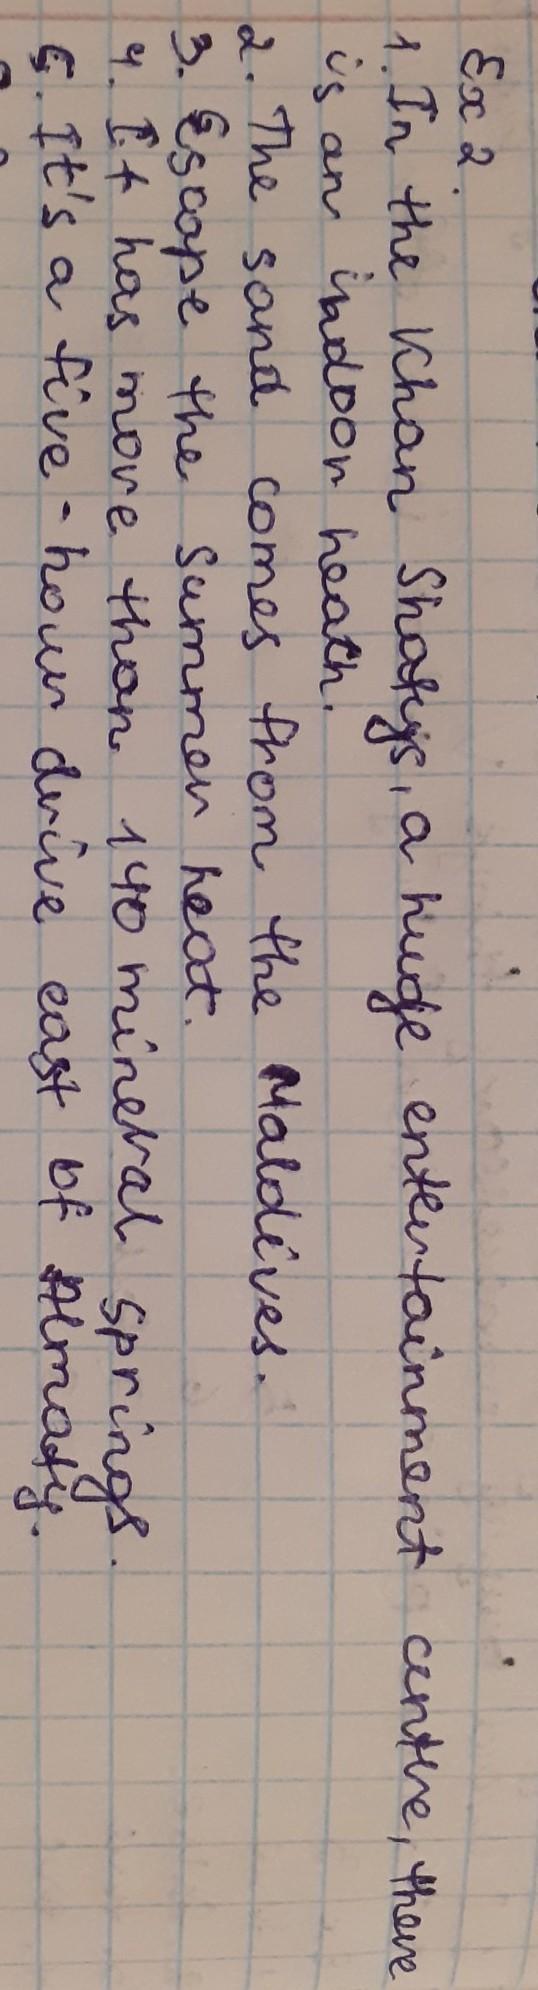 Ex 2.
1. In the Khan Shatys, a huge entertainment centre, there
is an indoor heath.
2. The sand comes from the Maldives.
3. Escape the summer heat.
4. It has more than 140 mineral springs.
5. It's a five-hour drive east of Almaty.